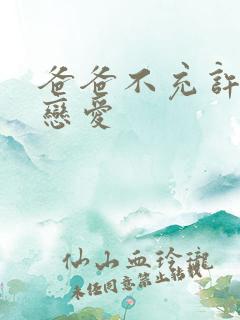 爸爸不充許
戀愛
仙山血玲瓏
未任同意禁止轉載